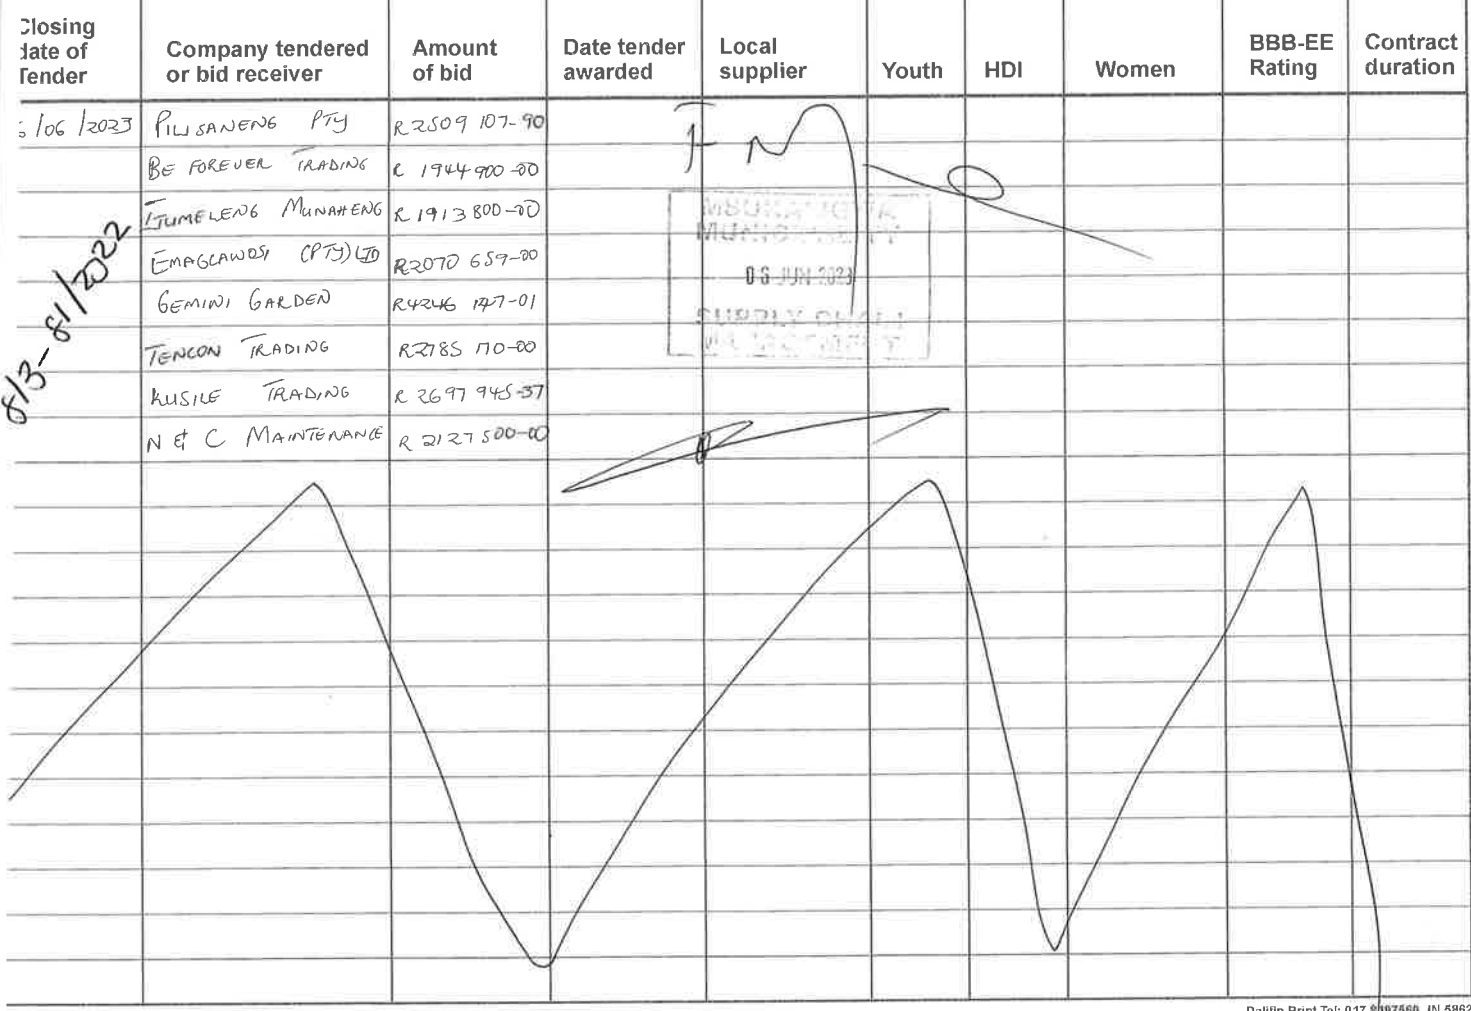 Closing date of Tender | Company tendered or bid receiver | Amount of bid | Date tender awarded | Local supplier | Youth | HDI | Women | BBB-EE Rating | Contract duration
/06/2023 | PILISANENG PTY | R2509 107-90
BE FOREVER TRADING | R 1944 900-00
ITUMELENG MUNAHENG | R 1913 800-00
EMAGCAWOSI (PTY) LTD | R2070 659-00
GEMINI GARDEN | R4246 147-01
TENCON TRADING | R2785 170-00
KUSILE TRADING | R 2697 945-37
N & C MAINTENANCE | R 2127 500-00
8/3-81/2022
MUNICIPALITY
06 JUN 2023
SUPPLY CHAIN
Print Tel: 017